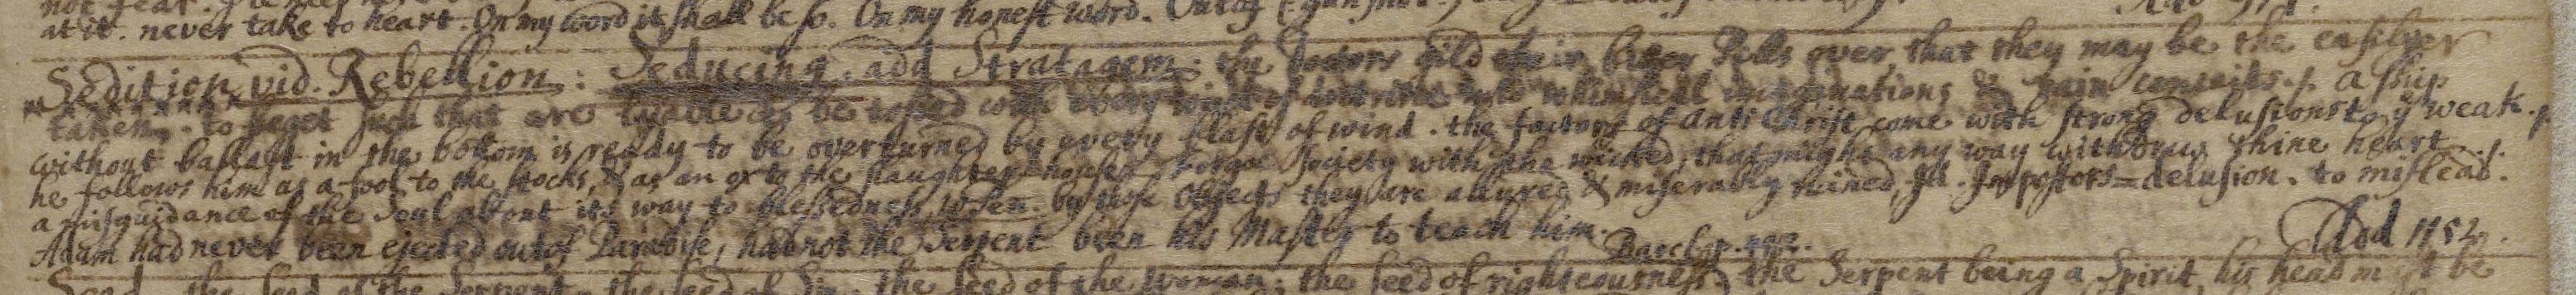 at it. never take to heart. On my word it shall be so. On my honest word.
Sedition, vid. Rebellion: Seducing, add Stratagem: the Doctors gild their bitter Pills over, that they may be the easilyer
taken. to such that are lyable to be tossed with every wind of doctrine into whimsical imaginations & vain conceits./. a ship
without ballast in the bottom is ready to be overturned by every blast of wind. the factors of anti Christ come with strong delusions to yͤ weak./.
he follows him as a fool to the stocks, & as an ox to the slaughter-house. Forgoe Society with the wicked, that might any way withdraw thine heart./.
a misguidance of the Soul about its way to blessedness, when by those Objects they are allured & miserably ruined, Impostors=delusion. to mislead.
Adam had never been ejected out of Paradise, had not the Serpent been his Master to teach him. Add 1152.
Seed, the seed of the Serpent, the seed of Sin, the Seed of the Woman; the seed of righteousness. the Serpent being a Spirit, his head must be